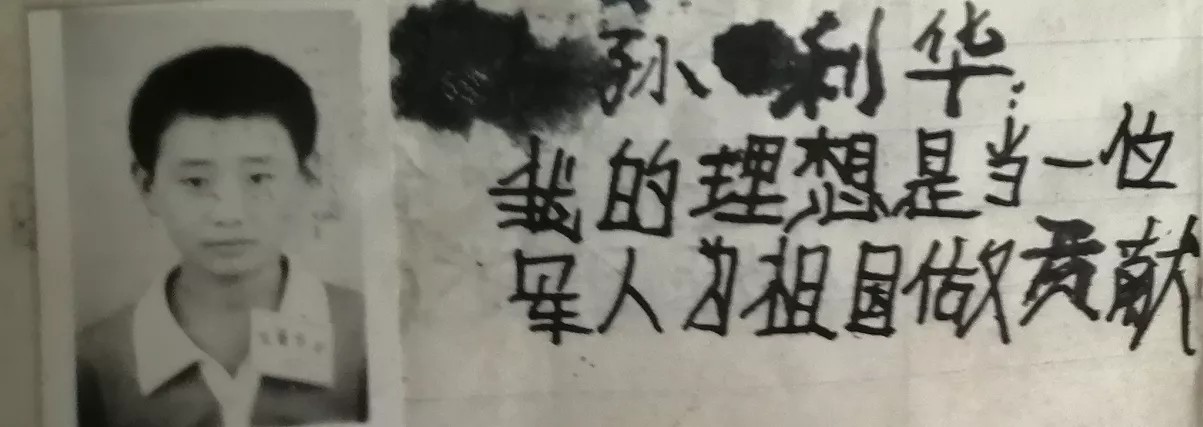 孙利华
我的理想是当一位
军人为祖国做贡献